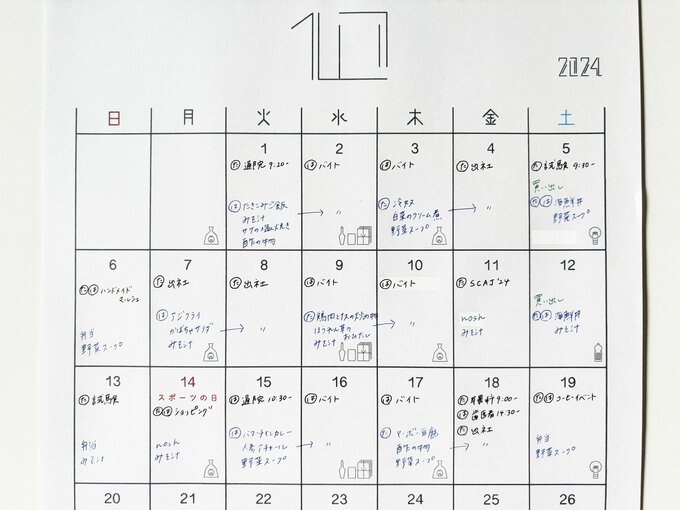 10
2024
日 月 火 水 木 金 土
1
た 通院 9:20~
は たきこみご飯
みそ汁
サケの塩焼き
酢の物
2
は バイト
〃
3
は バイト
た 冷奴
白菜のクリーム煮
野菜スープ
4
た 出社
〃
5
た 試験 9:30~
買い出し
た は 海鮮丼
野菜スープ
6
た は ハンドメイド
マルシェ
弁当
野菜スープ
7
た 出社
は アジフライ
かぼちゃサラダ
みそ汁
8
た 出社
〃
9
は バイト
は 鶏肉とナスの
ほうれん草の
おひたし
みそ汁
10
は バイト
〃
11
た SCAJ'24
nosh
みそ汁
12
買い出し
た は 海鮮丼
みそ汁
13
た 試験
弁当
みそ汁
14
スポーツの日
た は ショッピング
nosh
みそ汁
15
は 通院 10:30~
は バターチキンカレー
野菜スープ
16
は バイト
〃
17
は バイト
た マーボー豆腐
酢の物
野菜スープ
18
た 耳鼻科 9:00~
は 歯医者 14:30~
た 出社
〃
19
た は コーヒーイベント
弁当
野菜スープ
20 21 22 23 24 25 26